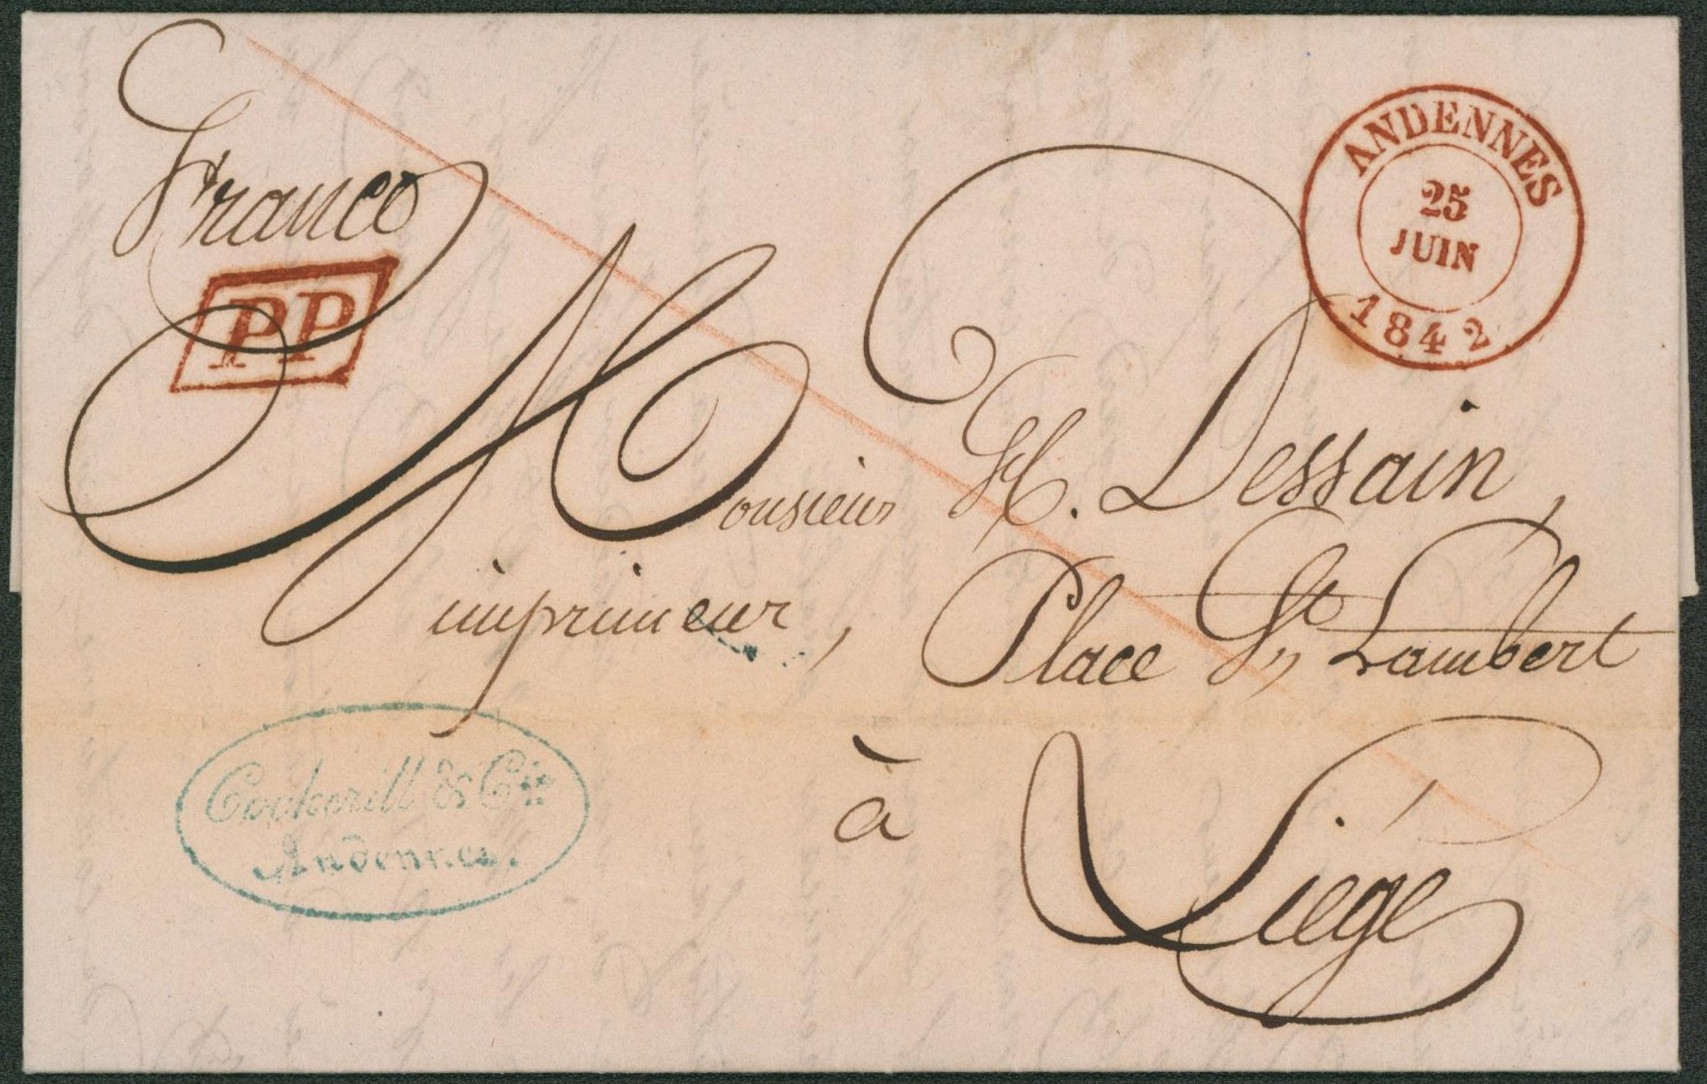 Franco
PP
ANDENNES
25
JUIN
1842
Monsieur H. Dessain,
imprimeur, Place St Lambert
à Liége
Cockerill & Cie
Andennes.